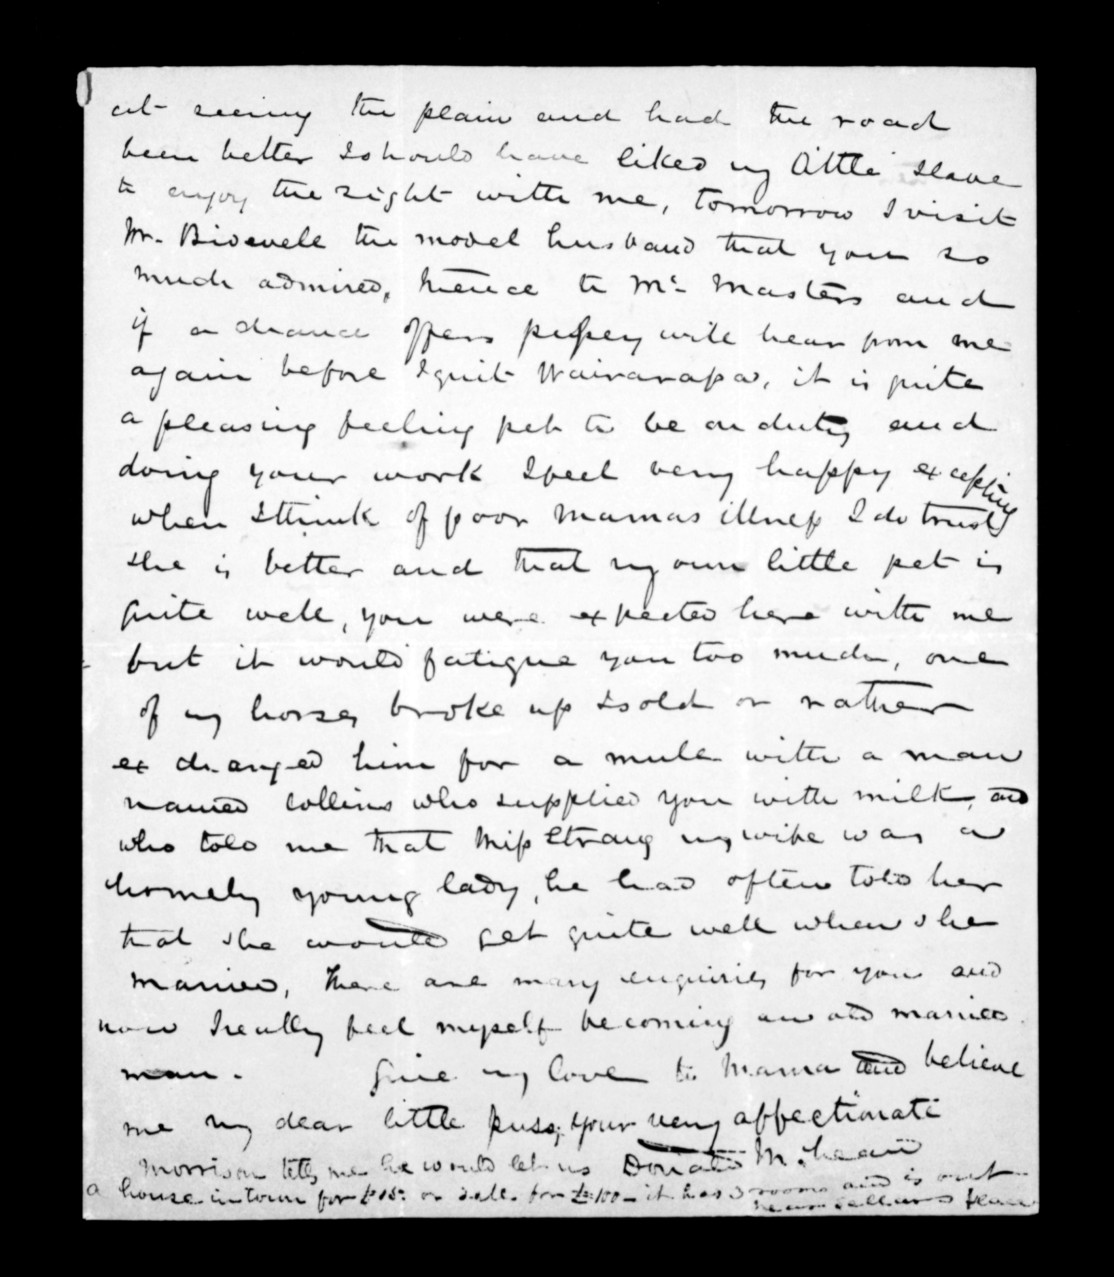 at seeing the plain and had the road
been better I should have liked my little slave
to enjoy the sight with me, tomorrow I visit
Mr. Bidwell the model husband that you so
much admired, thence to Mc Masters and
if a chance offers pussey will hear from me
again before I quit Wairarapa, it is quite
a pleasing feeling pet to be on duty and
doing your work I feel very happy excepting
when I think of poor Mamas illness I do trust
she is better and that my own little pet is
quite well, you were expected here with me
but it would fatigue you too much, one
of my horses broke up I sold or rather
exchanged him for a mule with a man
named Collins who supplied you with milk, and
who told me that Miss Strang my wife was a
homely young lady, he had often told her
that she would get quite well when she
married, there are many enquiries for you and
now I really feel myself becoming an old married
man. Give my love to Mama and believe
me my dear little puss, Your very affectionate
Donald McLean
Morrison tells me he would let us
a house in town for or sell for £100 - it has 3 rooms and is out
near place